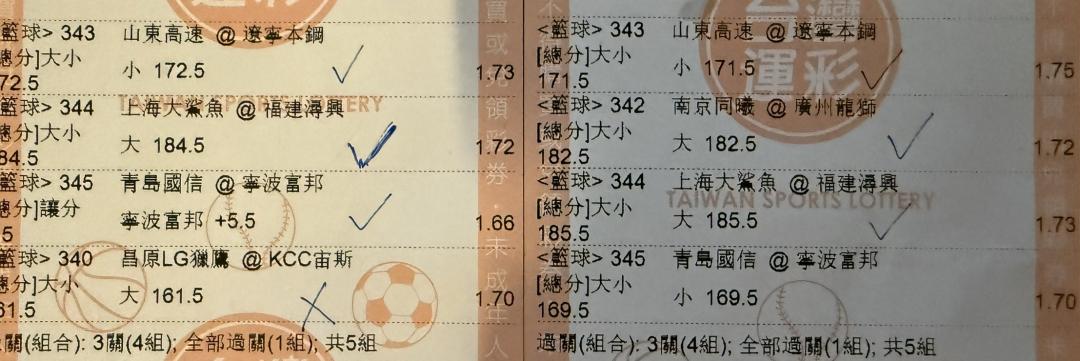 籃球> 343 山東高速 @ 遼寧本鋼
[總分]大小 小 172.5
72.5 1.73
籃球> 344 上海大鯊魚 @ 福建潯興
總分]大小 大 184.5
84.5 1.72
籃球> 345 青島國信 @ 寧波富邦
總分]讓分 寧波富邦 +5.5
5 1.66
籃球> 340 昌原LG獵鷹 @ KCC宙斯
總分]大小 大 161.5
61.5 1.70
過關(組合): 3關(4組); 全部過關(1組); 共5組
<籃球> 343 山東高速 @ 遼寧本鋼
[總分]大小 小 171.5
171.5 1.75
<籃球> 342 南京同曦 @ 廣州龍獅
[總分]大小 大 182.5
182.5 1.72
<籃球> 344 上海大鯊魚 @ 福建潯興
[總分]大小 大 185.5
185.5 1.73
<籃球> 345 青島國信 @ 寧波富邦
[總分]大小 小 169.5
169.5 1.70
過關(組合): 3關(4組); 全部過關(1組); 共5組
台灣
運彩
TAIWAN SPORTS LOTTERY
TAIWAN SPORTS LOTTERY